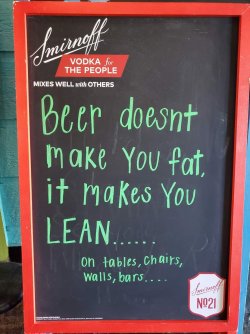 Smirnoff
VODKA for
THE PEOPLE
MIXES WELL with OTHERS
Beer doesnt
make You fat,
it makes You
LEAN......
on tables, chairs,
walls, bars....
Smirnoff
No21